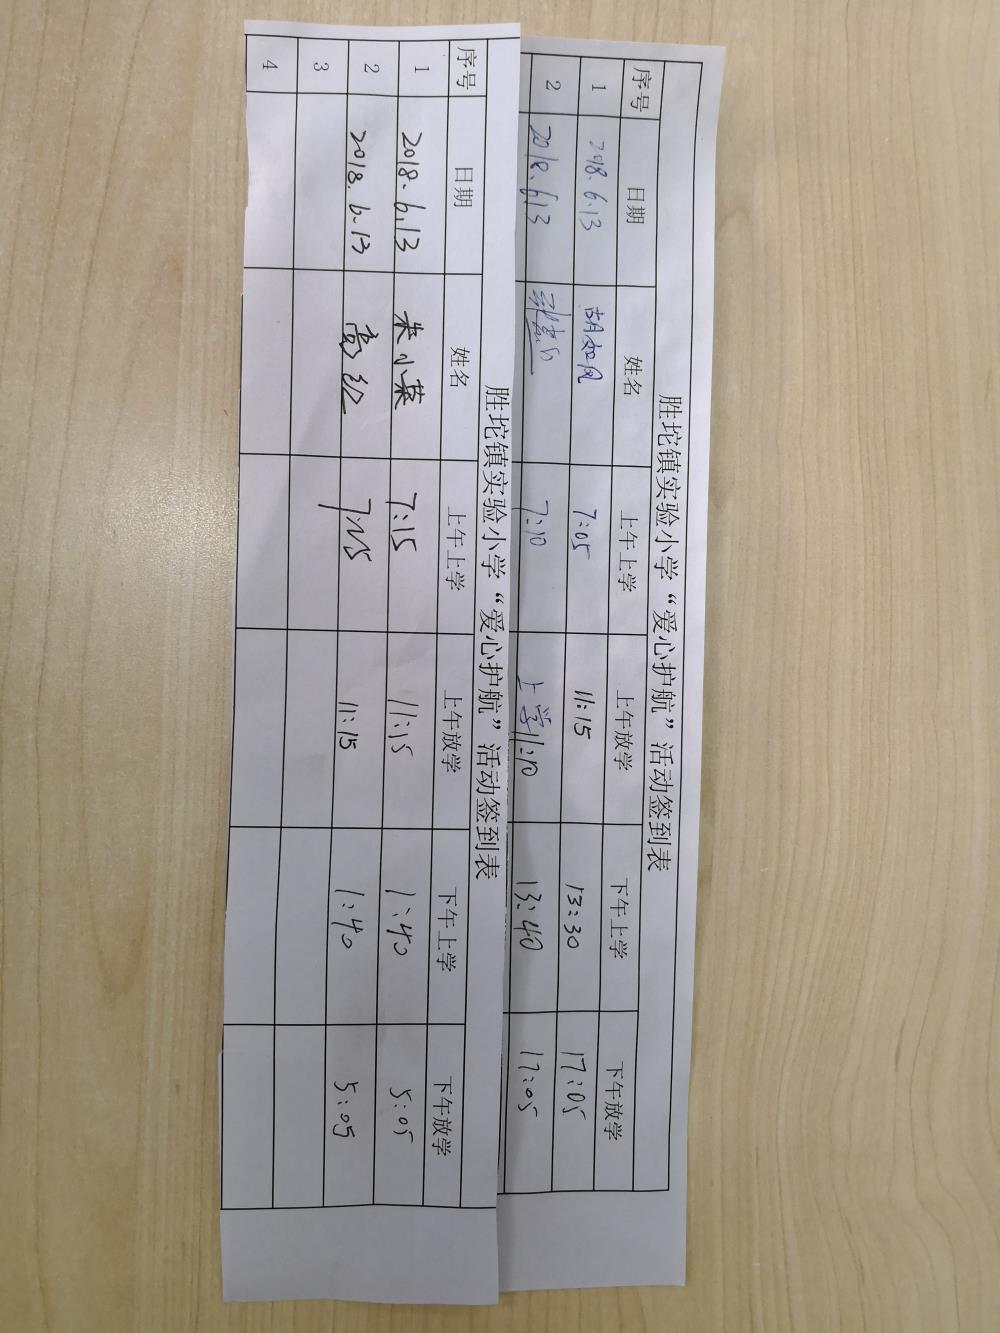 胜坨镇实验小学“爱心护航”活动签到表
序号 日期 姓名 上午上学 上午放学 下午上学 下午放学
1 2018.6.13 7:05 11:15 13:30 17:05
2 2018.6.13 7:10 上学11:10 13:40 17:05
胜坨镇实验小学“爱心护航”活动签到表
序号 日期 姓名 上午上学 上午放学 下午上学 下午放学
1 2018.6.13 朱小菜 7:15 11:15 1:40 5:05
2 2018.6.13 高 7:15 11:15 1:40 5:05
3
4